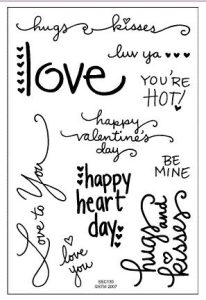 hugs & kisses
luv ya
love
YOU'RE
HOT!
happy
valentine's
day
BE
MINE
Love to You
happy
heart
day
love
you
hugs and
kisses